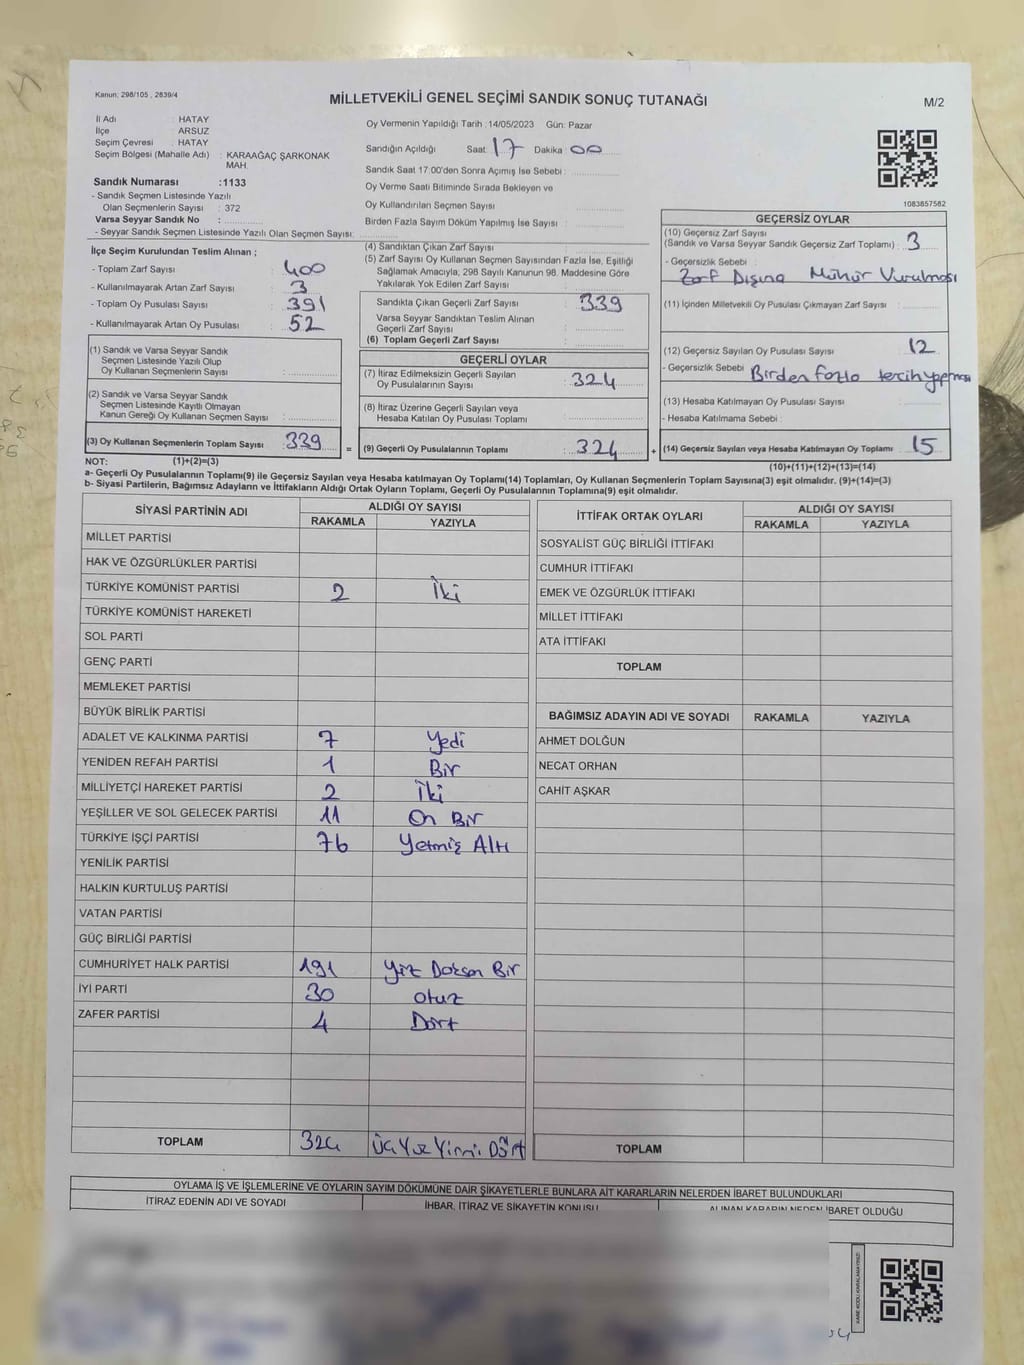 Kanun: 298/105 , 2839/4
MİLLETVEKİLİ GENEL SEÇİMİ SANDIK SONUÇ TUTANAĞI
M/2
İl Adı : HATAY
İlçe ARSUZ
Seçim Çevresi : HATAY
Seçim Bölgesi (Mahalle Adı) : KARAAĞAÇ ŞARKONAK
MAH.
Sandık Numarası :1133
- Sandık Seçmen Listesinde Yazılı
Olan Seçmenlerin Sayısı : 372
Varsa Seyyar Sandık No :
- Seyyar Sandık Seçmen Listesinde Yazılı Olan Seçmen Sayısı:
Oy Vermenin Yapıldığı Tarih :14/05/2023 Gün: Pazar
Sandığın Açıldığı Saat: 17 Dakika: 00
Sandık Saat 17:00'den Sonra Açımış İse Sebebi :
Oy Verme Saati Bitiminde Sırada Bekleyen ve
Oy Kullandırılan Seçmen Sayısı
Birden Fazla Sayım Döküm Yapılmış İse Sayısı :
1083857582
İlçe Seçim Kurulundan Teslim Alınan ;
- Toplam Zarf Sayısı : 400
- Kullanılmayarak Artan Zarf Sayısı : 3
- Toplam Oy Pusulası Sayısı : 391
- Kullanılmayarak Artan Oy Pusulası : 52
(1) Sandık ve Varsa Seyyar Sandık
Seçmen Listesinde Yazılı Olup
Oy Kullanan Seçmenlerin Sayısı :
(2) Sandık ve Varsa Seyyar Sandık
Seçmen Listesinde Kayıtlı Olmayan
Kanun Gereği Oy Kullanan Seçmen Sayısı :
(3) Oy Kullanan Seçmenlerin Toplam Sayısı : 339
(4) Sandıktan Çıkan Zarf Sayısı :
(5) Zarf Sayısı Oy Kullanan Seçmen Sayısından Fazla İse, Eşitliği
Sağlamak Amacıyla; 298 Sayılı Kanunun 98. Maddesine Göre
Yakılarak Yok Edilen Zarf Sayısı :
Sandıkta Çıkan Geçerli Zarf Sayısı : 339
Varsa Seyyar Sandıktan Teslim Alınan
Geçerli Zarf Sayısı :
(6) Toplam Geçerli Zarf Sayısı :
GEÇERLİ OYLAR
(7) İtiraz Edilmeksizin Geçerli Sayılan
Oy Pusulalarının Sayısı : 324
(8) İtiraz Üzerine Geçerli Sayılan veya
Hesaba Katılan Oy Pusulası Toplamı :
= (9) Geçerli Oy Pusulalarının Toplamı : 324 +
GEÇERSİZ OYLAR
(10) Geçersiz Zarf Sayısı
(Sandık ve Varsa Seyyar Sandık Geçersiz Zarf Toplamı) : 3
- Geçersizlik Sebebi :
Zarf Dışına Mühür Vurulması
(11) İçinden Milletvekili Oy Pusulası Çıkmayan Zarf Sayısı :
(12) Geçersiz Sayılan Oy Pusulası Sayısı : 12
- Geçersizlik Sebebi : Birden fazla tercih yapması
(13) Hesaba Katılmayan Oy Pusulası Sayısı :
- Hesaba Katılmama Sebebi :
(14) Geçersiz Sayılan veya Hesaba Katılmayan Oy Toplamı : 15
NOT: (1)+(2)=(3)
(10)+(11)+(12)+(13)=(14)
a- Geçerli Oy Pusulalarının Toplamı(9) ile Geçersiz Sayılan veya Hesaba katılmayan Oy Toplamı(14) Toplamları, Oy Kullanan Seçmenlerin Toplam Sayısına(3) eşit olmalıdır. (9)+(14)=(3)
b- Siyasi Partilerin, Bağımsız Adayların ve İttifakların Aldığı Ortak Oyların Toplamı, Geçerli Oy Pusulalarının Toplamına(9) eşit olmalıdır.
SİYASİ PARTİNİN ADI ALDIĞI OY SAYISI
RAKAMLA YAZIYLA
MİLLET PARTİSİ
HAK VE ÖZGÜRLÜKLER PARTİSİ
TÜRKİYE KOMÜNİST PARTİSİ 2 İki
TÜRKİYE KOMÜNİST HAREKETİ
SOL PARTİ
GENÇ PARTİ
MEMLEKET PARTİSİ
BÜYÜK BİRLİK PARTİSİ
ADALET VE KALKINMA PARTİSİ 7 Yedi
YENİDEN REFAH PARTİSİ 1 Bir
MİLLİYETÇİ HAREKET PARTİSİ 2 İki
YEŞİLLER VE SOL GELECEK PARTİSİ 11 On Bir
TÜRKİYE İŞÇİ PARTİSİ 76 Yetmiş Altı
YENİLİK PARTİSİ
HALKIN KURTULUŞ PARTİSİ
VATAN PARTİSİ
GÜÇ BİRLİĞİ PARTİSİ
CUMHURİYET HALK PARTİSİ 191 Yüz Doksan Bir
İYİ PARTİ 30 Otuz
ZAFER PARTİSİ 4 Dört
TOPLAM 324 Üç Yüz Yirmi Dört
İTTİFAK ORTAK OYLARI ALDIĞI OY SAYISI
RAKAMLA YAZIYLA
SOSYALİST GÜÇ BİRLİĞİ İTTİFAKI
CUMHUR İTTİFAKI
EMEK VE ÖZGÜRLÜK İTTİFAKI
MİLLET İTTİFAKI
ATA İTTİFAKI
TOPLAM
BAĞIMSIZ ADAYIN ADI VE SOYADI RAKAMLA YAZIYLA
AHMET DOLĞUN
NECAT ORHAN
CAHİT AŞKAR
TOPLAM
OYLAMA İŞ VE İŞLEMLERİNE VE OYLARIN SAYIM DÖKÜMÜNE DAİR ŞİKAYETLERLE BUNLARA AİT KARARLARIN NELERDEN İBARET BULUNDUKLARI
İTİRAZ EDENİN ADI VE SOYADI İHBAR, İTİRAZ VE ŞİKAYETİN KONUSU ALINAN KARARIN NEDEN İBARET OLDUĞU